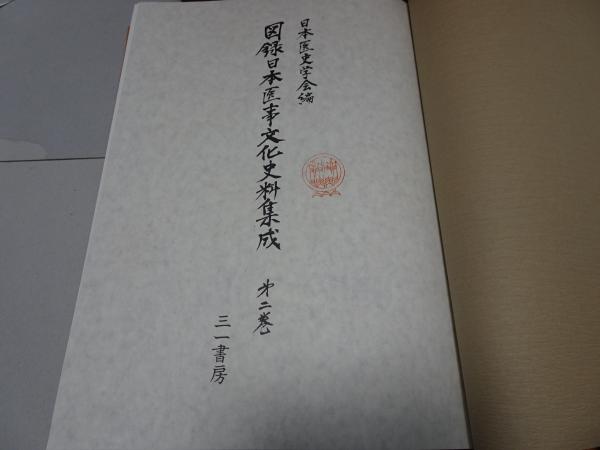 日本医史学会編
図録日本医事文化史料集成
第二巻
三一書房